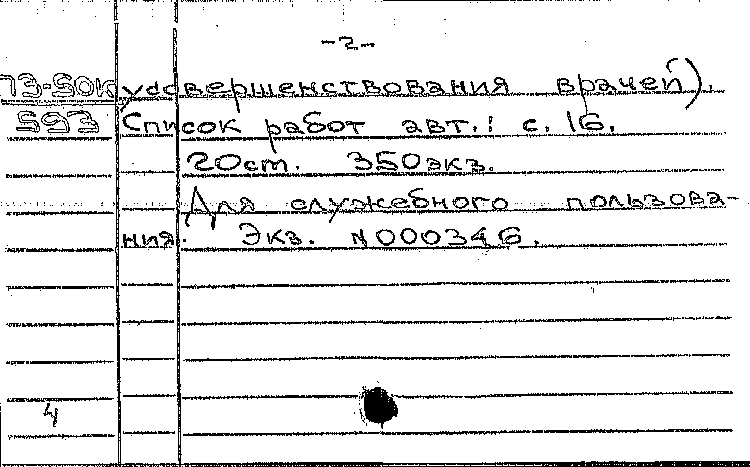 -2-
73-50к усовершенствования врачей).
593 Список работ авт.: с. 16.
20см. 350экз.
Для служебного пользова-
ния. Экз. N000346.
4